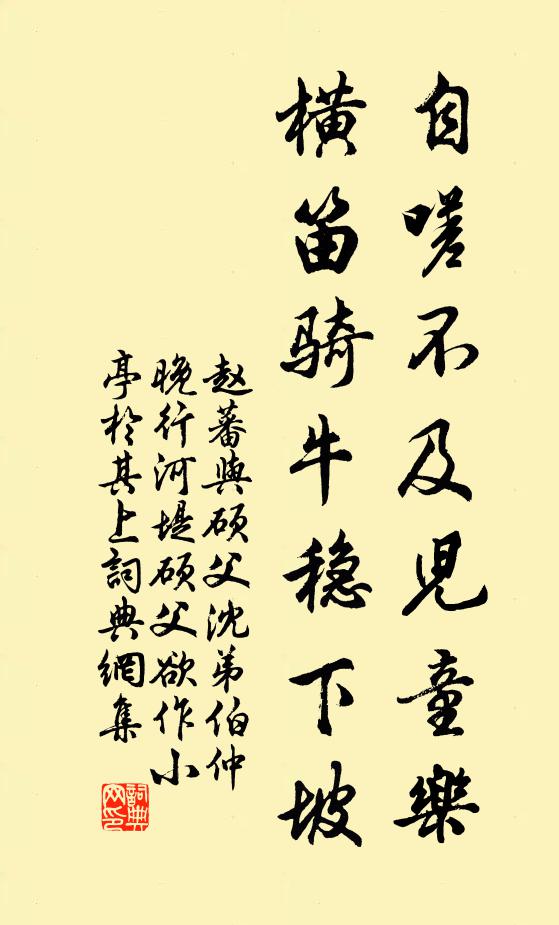 自嗟不及児童樂
橫笛骑牛稳下坡
赵蕃與硕父沈弟伯仲
晚行河堤硕父欲作小
亭於其上詞典網集
詞典
网印